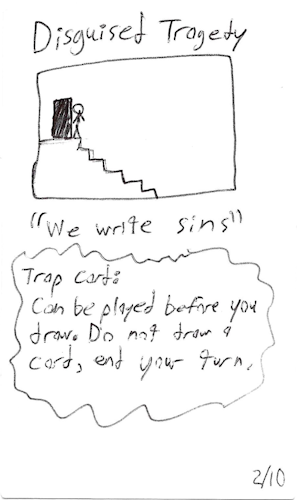 Disguised Tragedy
"We write sins"
Trap card:
Can be played before you
draw. Do not draw a
card, end your turn.
2/10